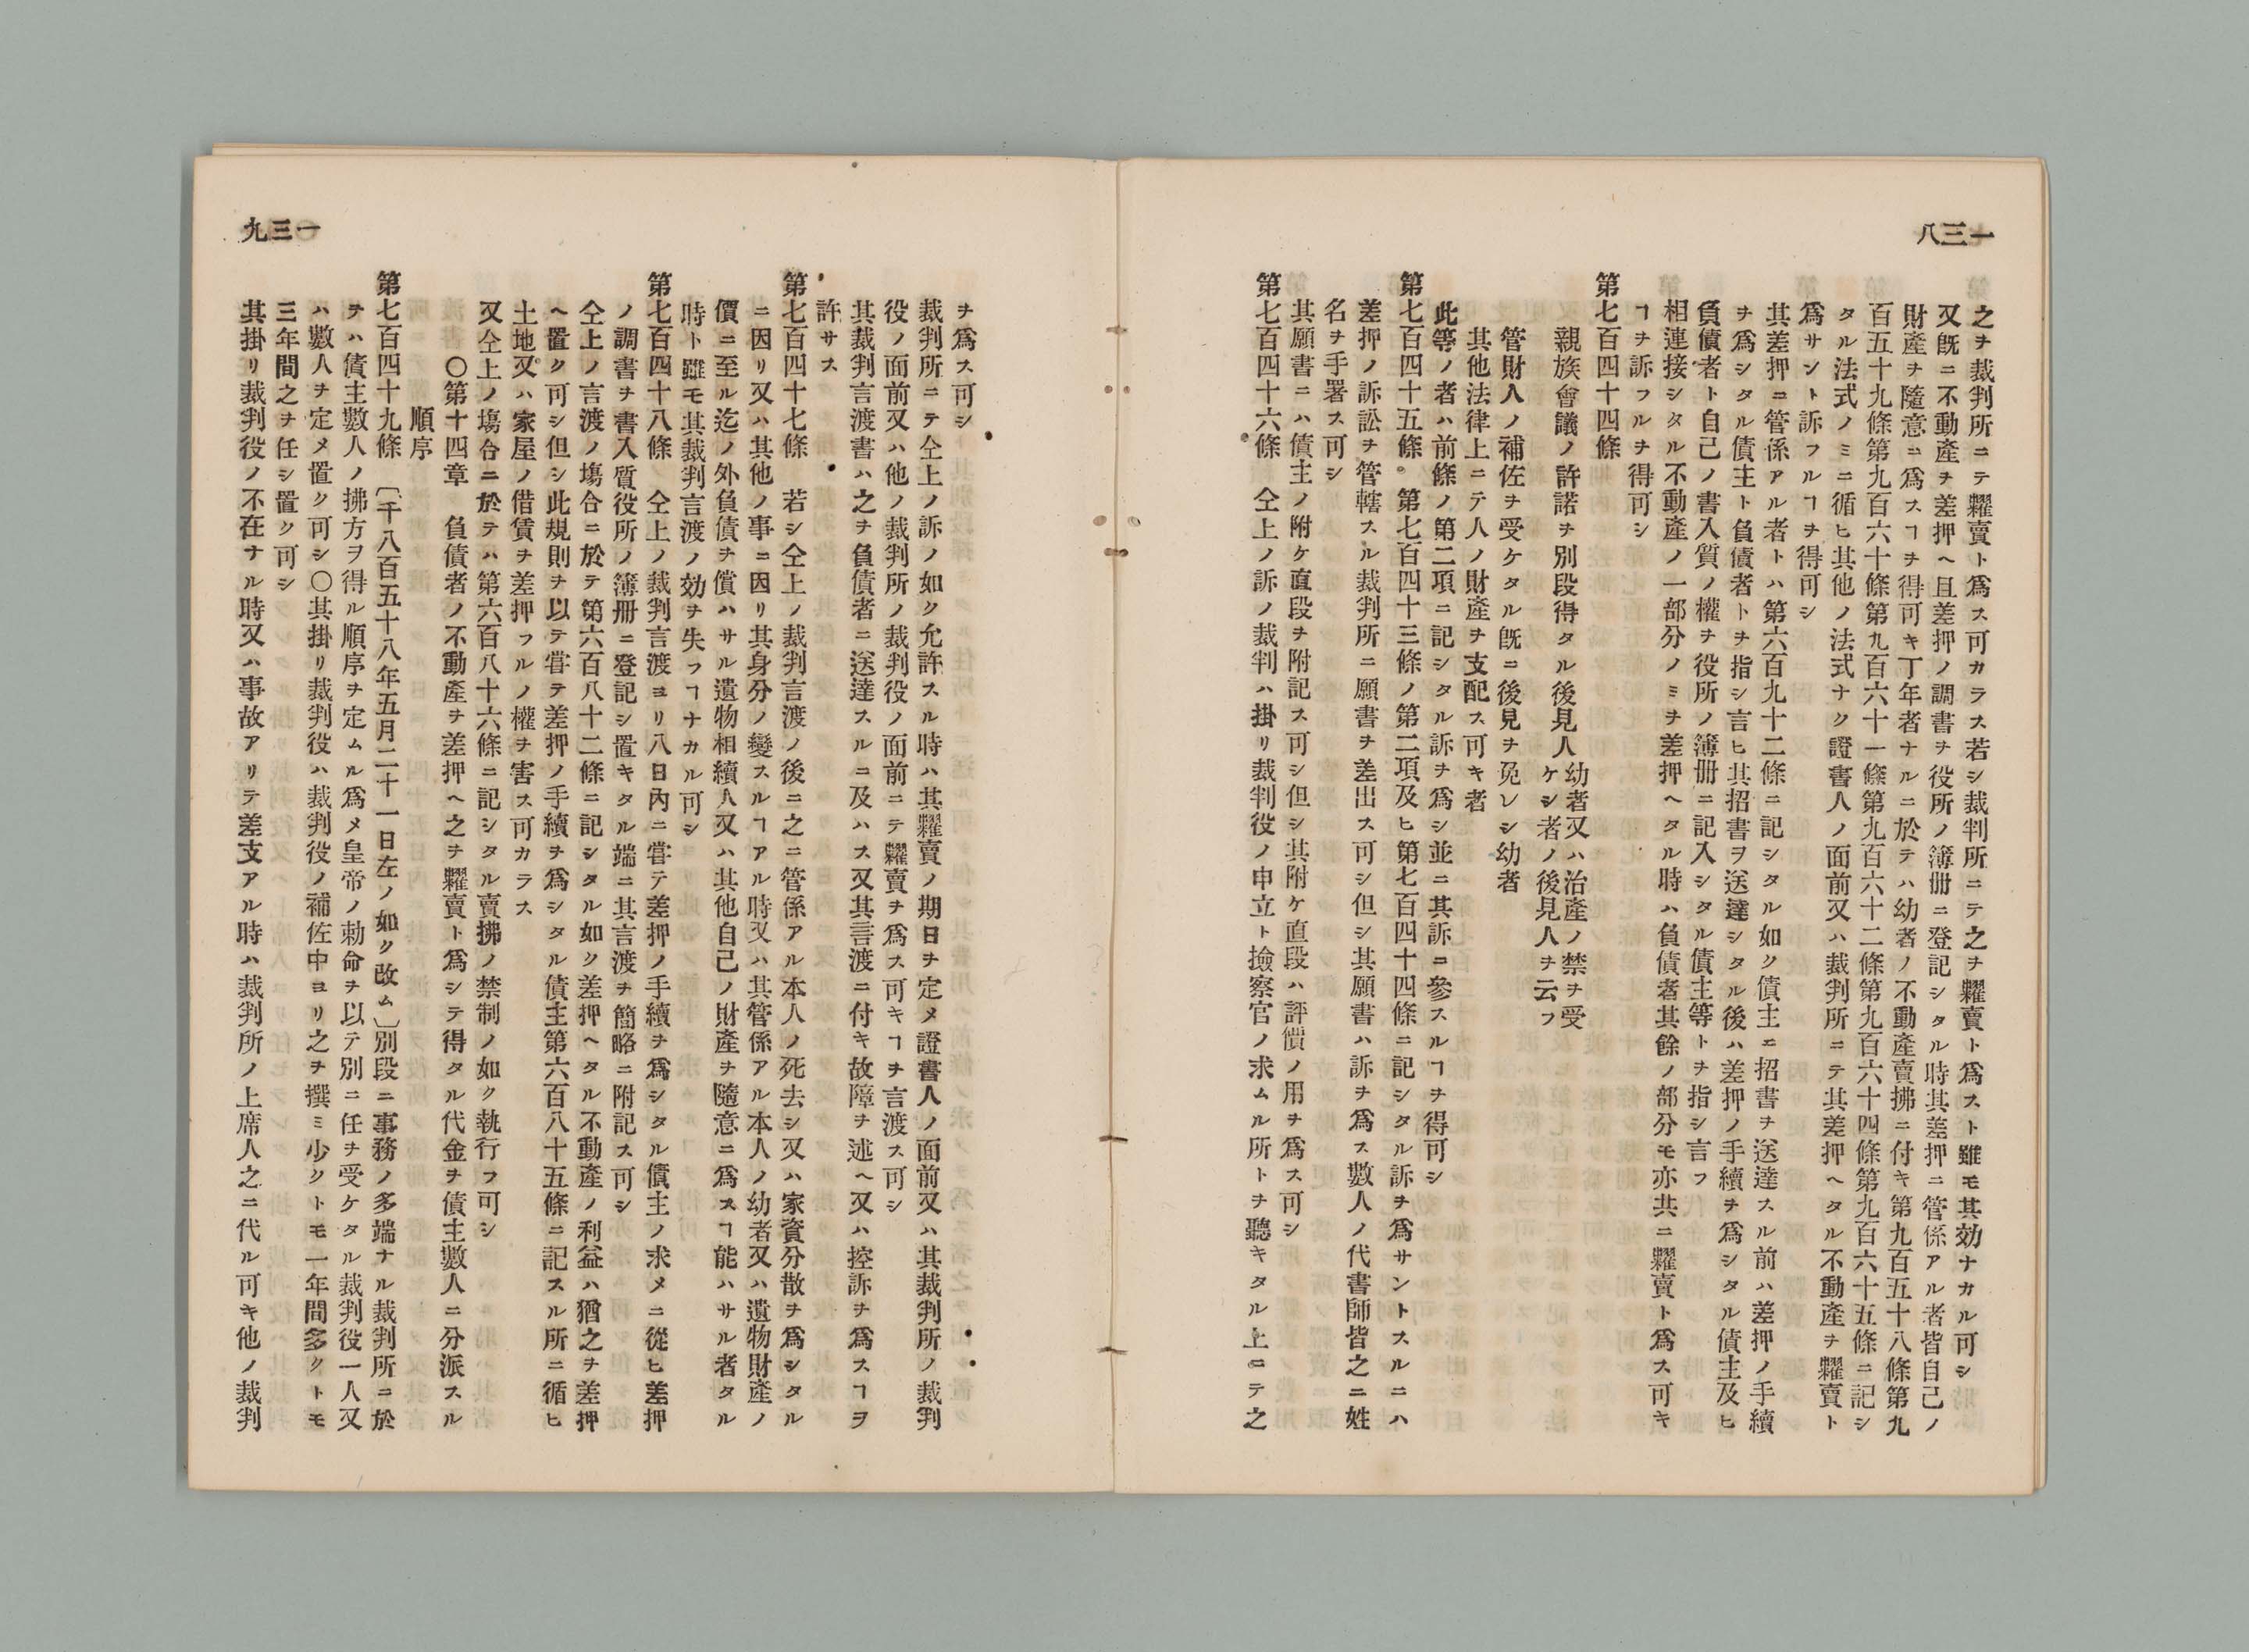 一三八
之ヲ裁判所ニテ糶賣ト爲ス可カラス若シ裁判所ニテ之ヲ糶賣ト爲スト雖モ其効ナカル可シ
又既ニ不動產ヲ差押ヘ且差押ノ調書ヲ役所ノ簿冊ニ登記シタル時其差押ニ管係アル者皆自己ノ
財產ヲ隨意ニ爲スヿヲ得可キ丁年者ナルニ於テハ幼者ノ不動產賣拂ニ付キ第九百五十八條第九
百五十九條第九百六十條第九百六十一條第九百六十二條第九百六十四條第九百六十五條ニ記シ
タル法式ノミニ循ヒ其他ノ法式ナク證書人ノ面前又ハ裁判所ニテ其差押ヘタル不動產ヲ糶賣ト
爲サント訴フルヿヲ得可シ
其差押ニ管係アル者トハ第六百九十二條ニ記シタル如ク債主ニ招書ヲ送達スル前ハ差押ノ手續
ヲ爲シタル債主ト負債者トヲ指シ言ヒ其招書ヲ送達シタル後ハ差押ノ手續ヲ爲シタル債主及ヒ
負債者ト自己ノ書入質ノ權ヲ役所ノ簿冊ニ記入シタル債主等トヲ指シ言フ
相連接シタル不動產ノ一部分ノミヲ差押ヘタル時ハ負債者其餘ノ部分モ亦共ニ糶賣ト爲ス可キ
ヿヲ訴フルヲ得可シ
第七百四十四條
親族會議ノ許諾ヲ別段得タル後見人幼者又ハ治產ノ禁ヲ受
ケシ者ノ後見人ヲ云フ
管財人ノ補佐ヲ受ケタル既ニ後見ヲ免レシ幼者
其他法律上ニテ人ノ財產ヲ支配ス可キ者
此等ノ者ハ前條ノ第二項ニ記シタル訴ヲ爲シ並ニ其訴ニ參スルヿヲ得可シ
第七百四十五條。第七百四十三條ノ第二項及ヒ第七百四十四條ニ記シタル訴ヲ爲サントスルニハ
差押ノ訴訟ヲ管轄スル裁判所ニ願書ヲ差出ス可シ但シ其願書ハ訴ヲ爲ス數人ノ代書師皆之ニ姓
名ヲ手署ス可シ
其願書ニハ債主ノ附ケ直段ヲ附記ス可シ但シ其附ケ直段ハ評價ノ用ヲ爲ス可シ
第七百四十六條　仝上ノ訴ノ裁判ハ掛リ裁判役ノ申立ト撿察官ノ求ムル所トヲ聽キタル上ニテ之
一三九
ヲ爲ス可シ
裁判所ニテ仝上ノ訴ノ如ク允許スル時ハ其糶賣ノ期日ヲ定メ證書人ノ面前又ハ其裁判所ノ裁判
役ノ面前又ハ他ノ裁判所ノ裁判役ノ面前ニテ糶賣ヲ爲ス可キヿヲ言渡ス可シ
其裁判言渡書ハ之ヲ負債者ニ送達スルニ及ハス又其言渡ニ付キ故障ヲ述ヘ又ハ控訴ヲ爲スヿヲ
許サス
第七百四十七條　若シ仝上ノ裁判言渡ノ後ニ之ニ管係アル本人ノ死去シ又ハ家資分散ヲ爲シタル
ニ因リ又ハ其他ノ事ニ因リ其身分ノ變スルヿアル時又ハ其管係アル本人ノ幼者又ハ遺物財產ノ
價ニ至ル迄ノ外負債ヲ償ハサル遺物相續人又ハ其他自己ノ財產ヲ隨意ニ爲スヿ能ハサル者タル
時ト雖モ其裁判言渡ノ効ヲ失フヿナカル可シ
第七百四十八條　仝上ノ裁判言渡ヨリ八日內ニ甞テ差押ノ手續ヲ爲シタル債主ノ求メニ從ヒ差押
ノ調書ヲ書入質役所ノ簿冊ニ登記シ置キタル端ニ其言渡ヲ簡略ニ附記ス可シ
仝上ノ言渡ノ塲合ニ於テ第六百八十二條ニ記シタル如ク差押ヘタル不動產ノ利益ハ猶之ヲ差押
ヘ置ク可シ但シ此規則ヲ以テ甞テ差押ノ手續ヲ爲シタル債主第六百八十五條ニ記スル所ニ循ヒ
土地又ハ家屋ノ借賃ヲ差押フルノ權ヲ害ス可カラス
又仝上ノ塲合ニ於テハ第六百八十六條ニ記シタル賣拂ノ禁制ノ如ク執行フ可シ
〇第十四章　負債者ノ不動產ヲ差押ヘ之ヲ糶賣ト爲シテ得タル代金ヲ債主數人ニ分派スル
順序
第七百四十九條　〔千八百五十八年五月二十一日左ノ如ク改ム〕別段ニ事務ノ多端ナル裁判所ニ於
テハ債主數人ノ拂方ヲ得ル順序ヲ定ムル爲メ皇帝ノ勅命ヲ以テ別ニ任ヲ受ケタル裁判役一人又
ハ數人ヲ定メ置ク可シ〇其掛リ裁判役ハ裁判役ノ補佐中ヨリ之ヲ撰ミ少クトモ一年間多クトモ
三年間之ヲ任シ置ク可シ
其掛リ裁判役ノ不在ナル時又ハ事故アリテ差支アル時ハ裁判所ノ上席人之ニ代ル可キ他ノ裁判